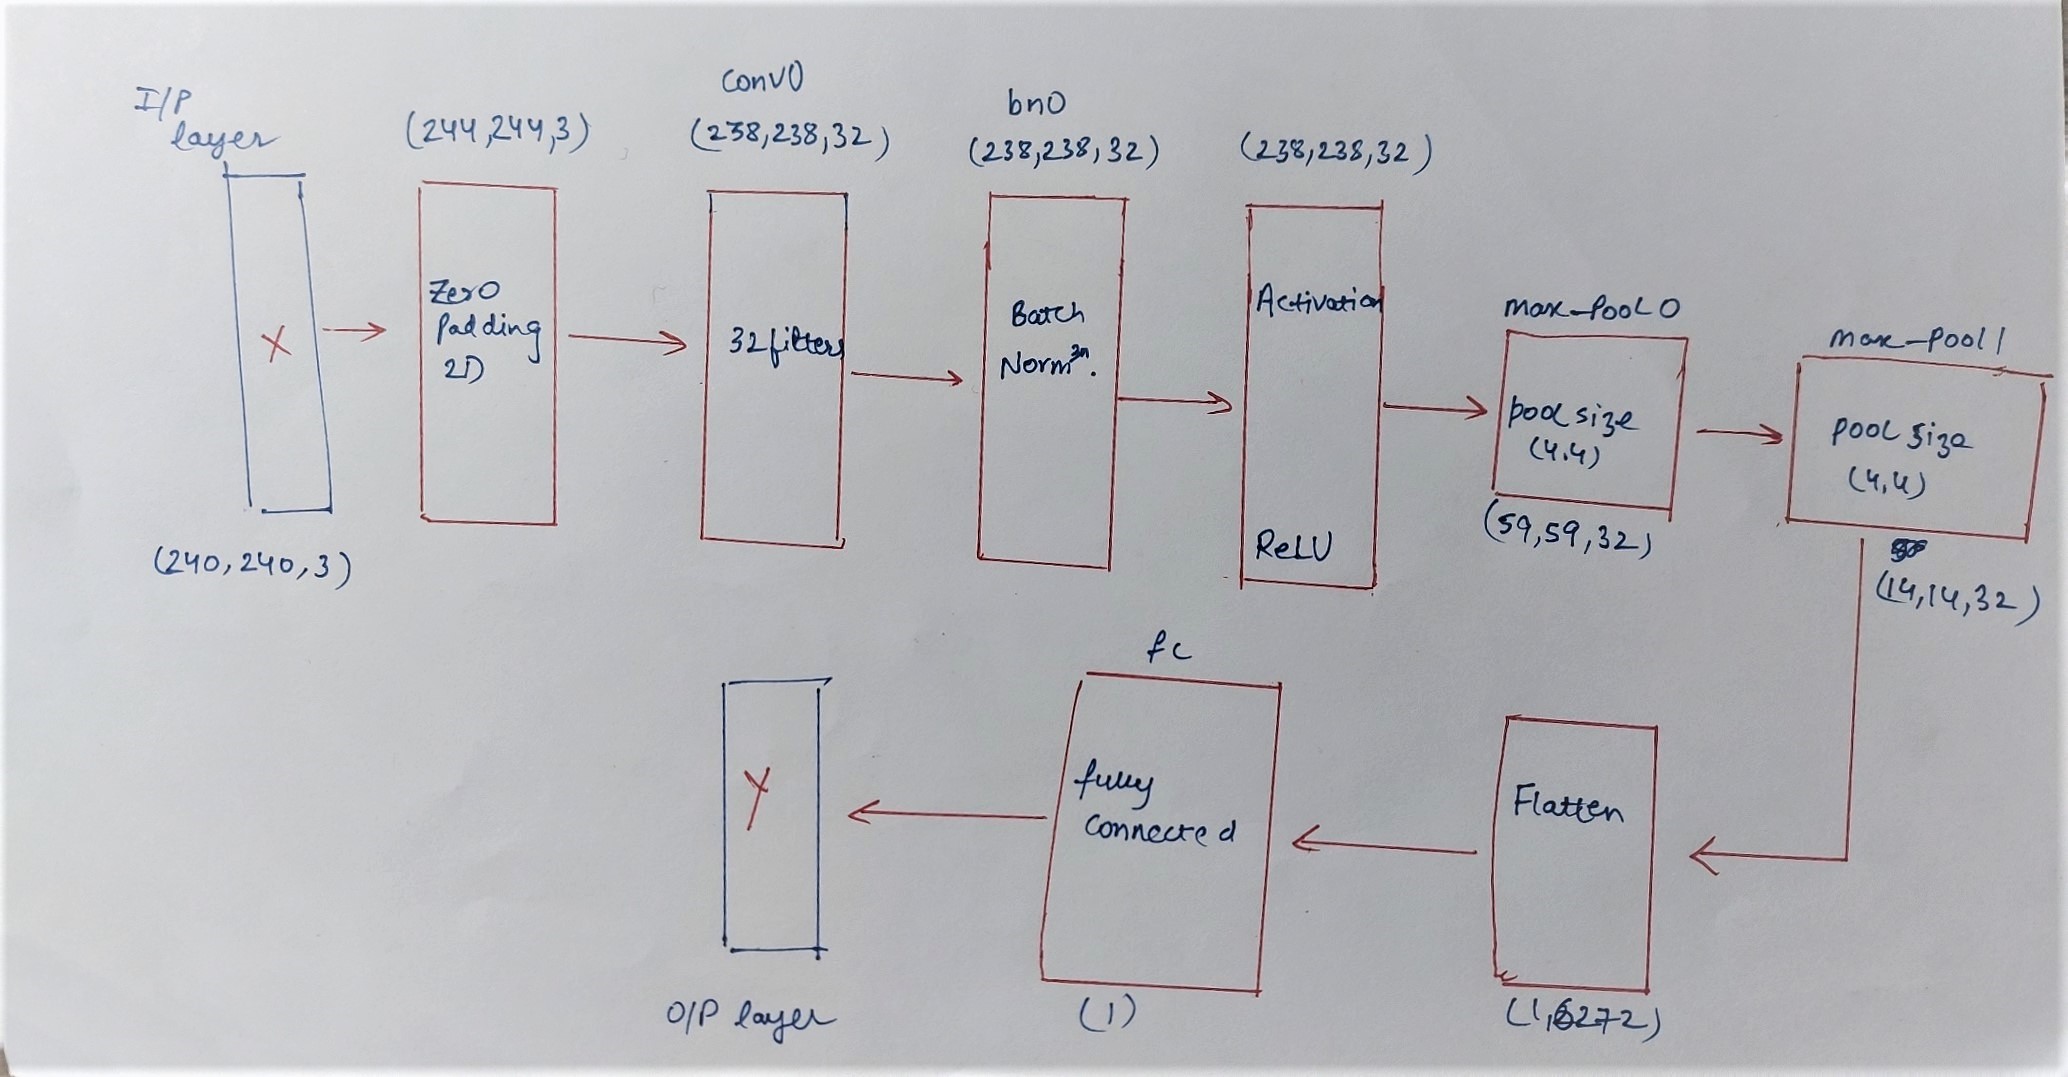 I/P
layer
X
(240,240,3)
(244,244,3)
Zero
Padding
2D
conv0
(238,238,32)
32 filters
bn0
(238,238,32)
Batch
Norm
(238,238,32)
Activation
ReLU
max-Pool 0
pool size
(4,4)
(59,59,32)
max-Pool 1
pool size
(4,4)
(14,14,32)
Flatten
(1,6272)
fc
fully
connected
(1)
Y
O/P layer